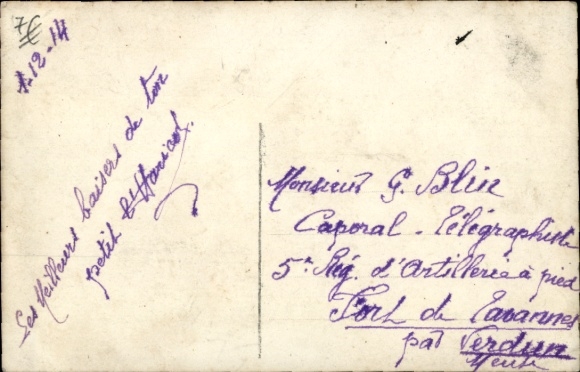 7€
1-12-14
Les Meilleurs baisers de ton
petit
Monsieur G. Blin
Caporal - Télégraphiste
5e Rég. d'Artillerie à pied
Fort de Tavannes
par Verdun
Meuse